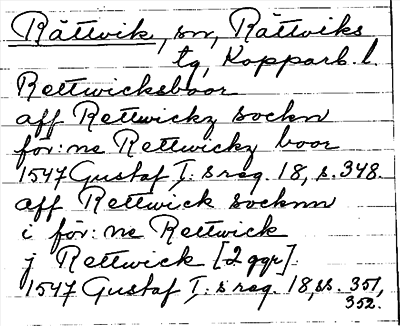 Rättvik, sn, Rättviks
tg, Kopparb. l.
Rettwicksboor
aff Rettwickz sockn
för:ne Rettwickz boor
1547 Gustaf I:s reg. 18, s. 348.
aff Rettwick socknn
i för:ne Rettwick
j Rettwick [2 ggr].
1547 Gustaf I:s reg. 18, ss. 351,
352.